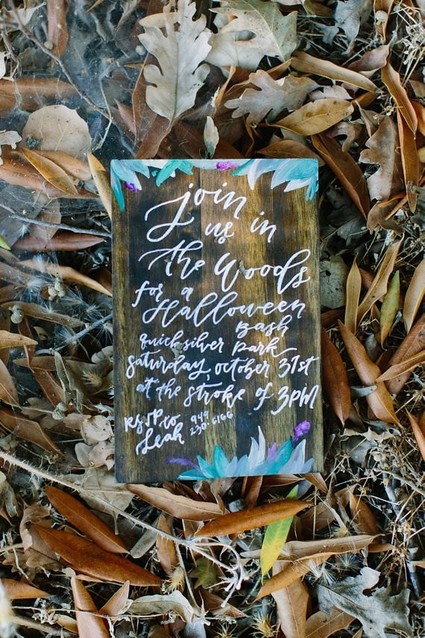 join
us in
the Woods
for a
Halloween
Bash
Quicksilver Park
Saturday, october 31st
at the stroke of 3pm
RSVP to 949
Leah 230·6166